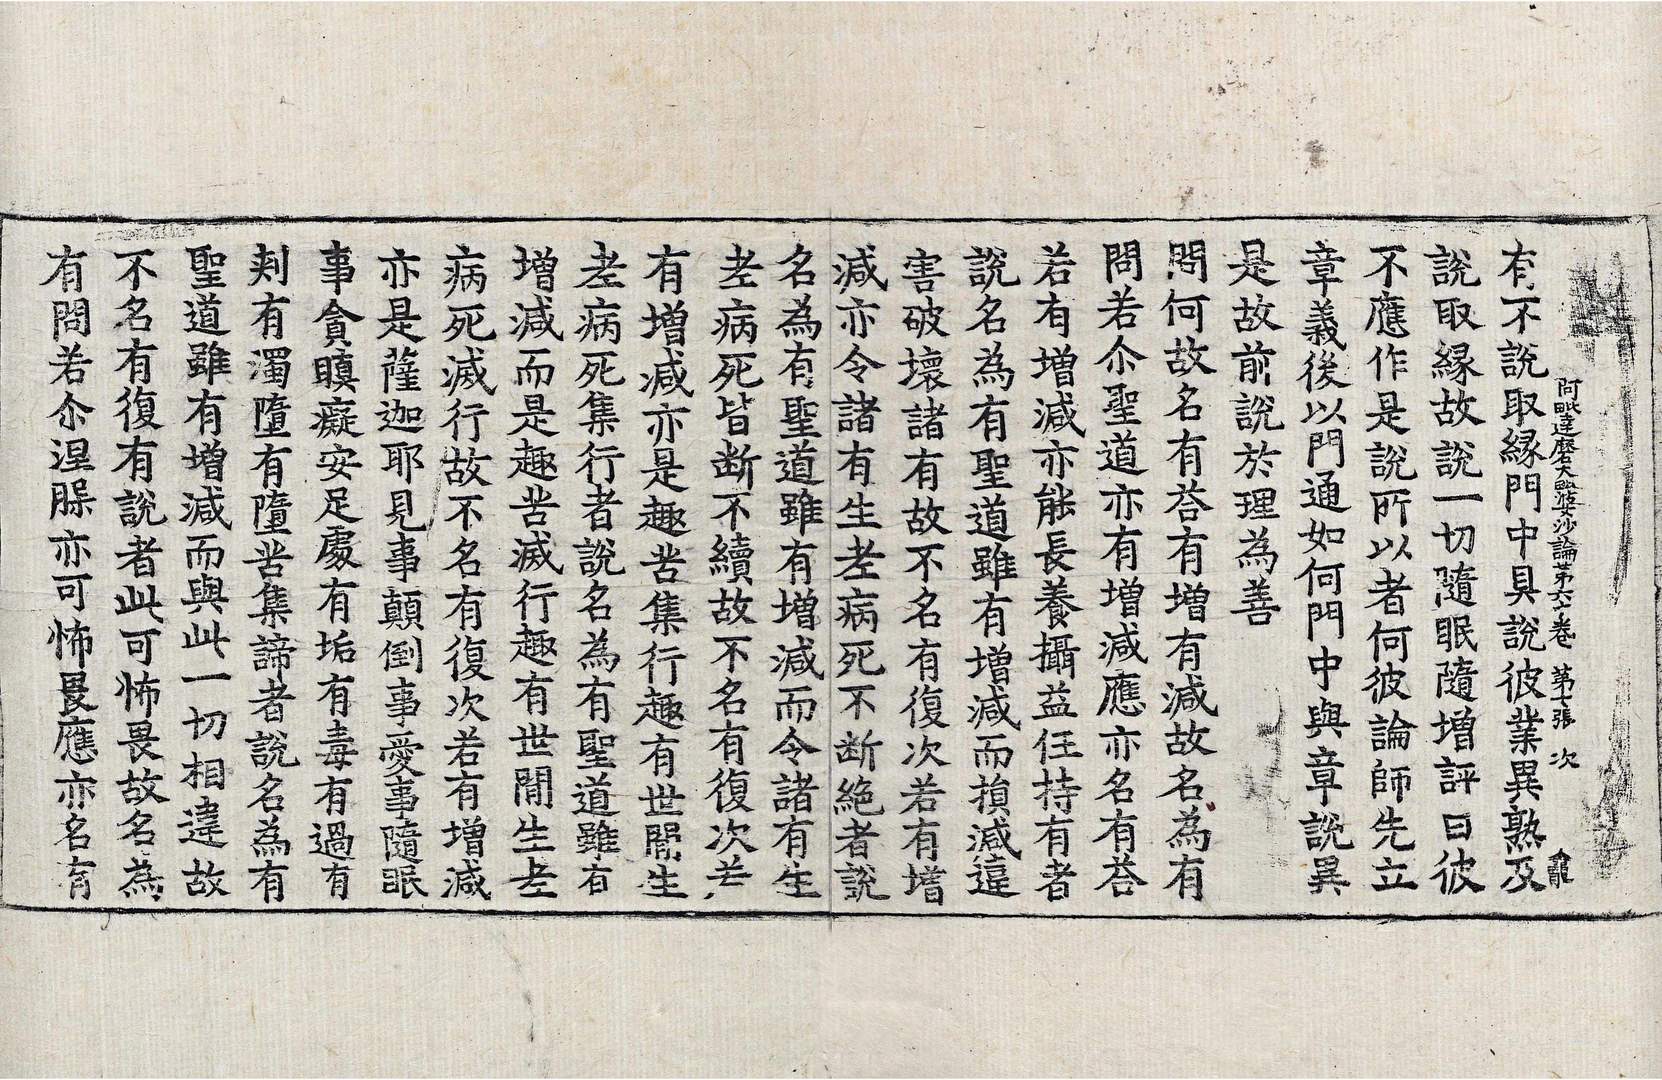 有不說取緣門中具說彼業異熟及
阿毗達磨大毗婆沙論第六十卷 第十張 次
說取緣故說一切隨眠隨增評曰彼
不應作是說所以者何彼論師先立
章義後以門通如何門中與章說異
是故前說於理為善
問何故名有荅有增有減故名為有
問若尒聖道亦有增減應亦名有荅
若有增減亦能長養攝益任持有者
說名為有聖道雖有增減而損減違
害破壞諸有故不名有復次若有增
減亦令諸有生老病死不断絶者說
名為有聖道雖有增減而令諸有生
老病死皆断不續故不名有復次若
有增減亦是趣苦集行趣有世間生
老病死集行者說名為有聖道雖有
增減而是趣苦滅行趣有世間生老
病死滅行故不名有復次若有增減
亦是薩迦耶見事顛倒事愛事隨眠
事貪瞋癡安足處有垢有毒有過有
刾有濁墮有墮苦集諦者說名為有
聖道雖有增減而與此一切相違故
不名有復有說者此可怖畏故名為
有問若尒涅槃亦可怖畏應亦名有